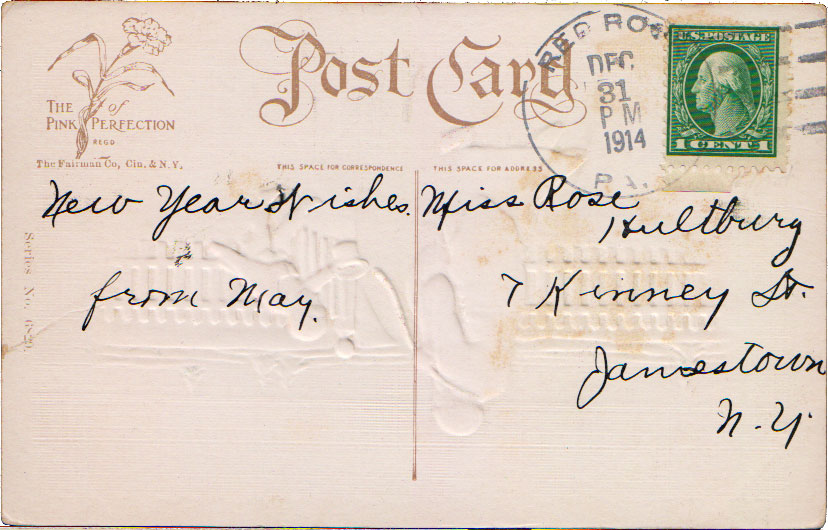 THE of
PINK PERFECTION
REGD
The Fairman Co, Cin. & N.Y.
Post Card
RED ROW
DEC
31
PM
1914
PA.
U.S. POSTAGE
1 CENT 1
THIS SPACE FOR CORRESPONDENCE
THIS SPACE FOR ADDRESS
New Year Wishes.
from May.
Miss Rose
Hultburg
7 Kinney St.
Jamestown
N.Y.
Series No.